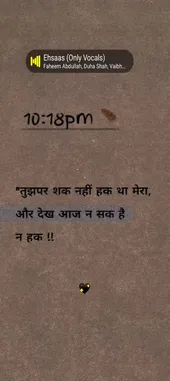 Ehsaas (Only Vocals)
Faheem Abdullah, Duha Shah, Vaibh...
10:18pm
"तुझपर शक नहीं हक था मेरा,
और देख आज न सक है
न हक !!